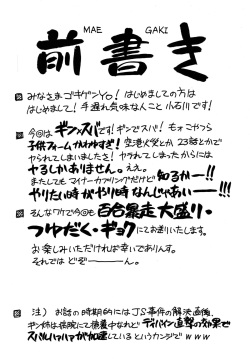 MAE GAKI
前書き
みなさまゴキゲンYO! はじめましての方は
はじめまして! 手遅れ気味なんこと小石川です!
今回はギン×スバです! ギンでスバ! モォこやつら
子供フォームかわゆすぎ! 空港火災とか23話とかで
やられてしまいましたさ! ヤラれてしまったからには
ヤるしかありません。ええ。
またしてもマイナーカップリングだけど知るかー!!
やりたい時がやり時なんじゃあいー!!!
そんなワケで今回も百合暴走大盛り・
つゆだく・ギョクにてお送りいたします。
お楽しみいただければ幸いでありんす。
それではどぞーーー。
注) お話の時期的にはJS事件の解決直後、
ギン姉は病院にて療養中なれどディバイン直撃の効果で
スバルハァハァが加速しているというカンジでwww